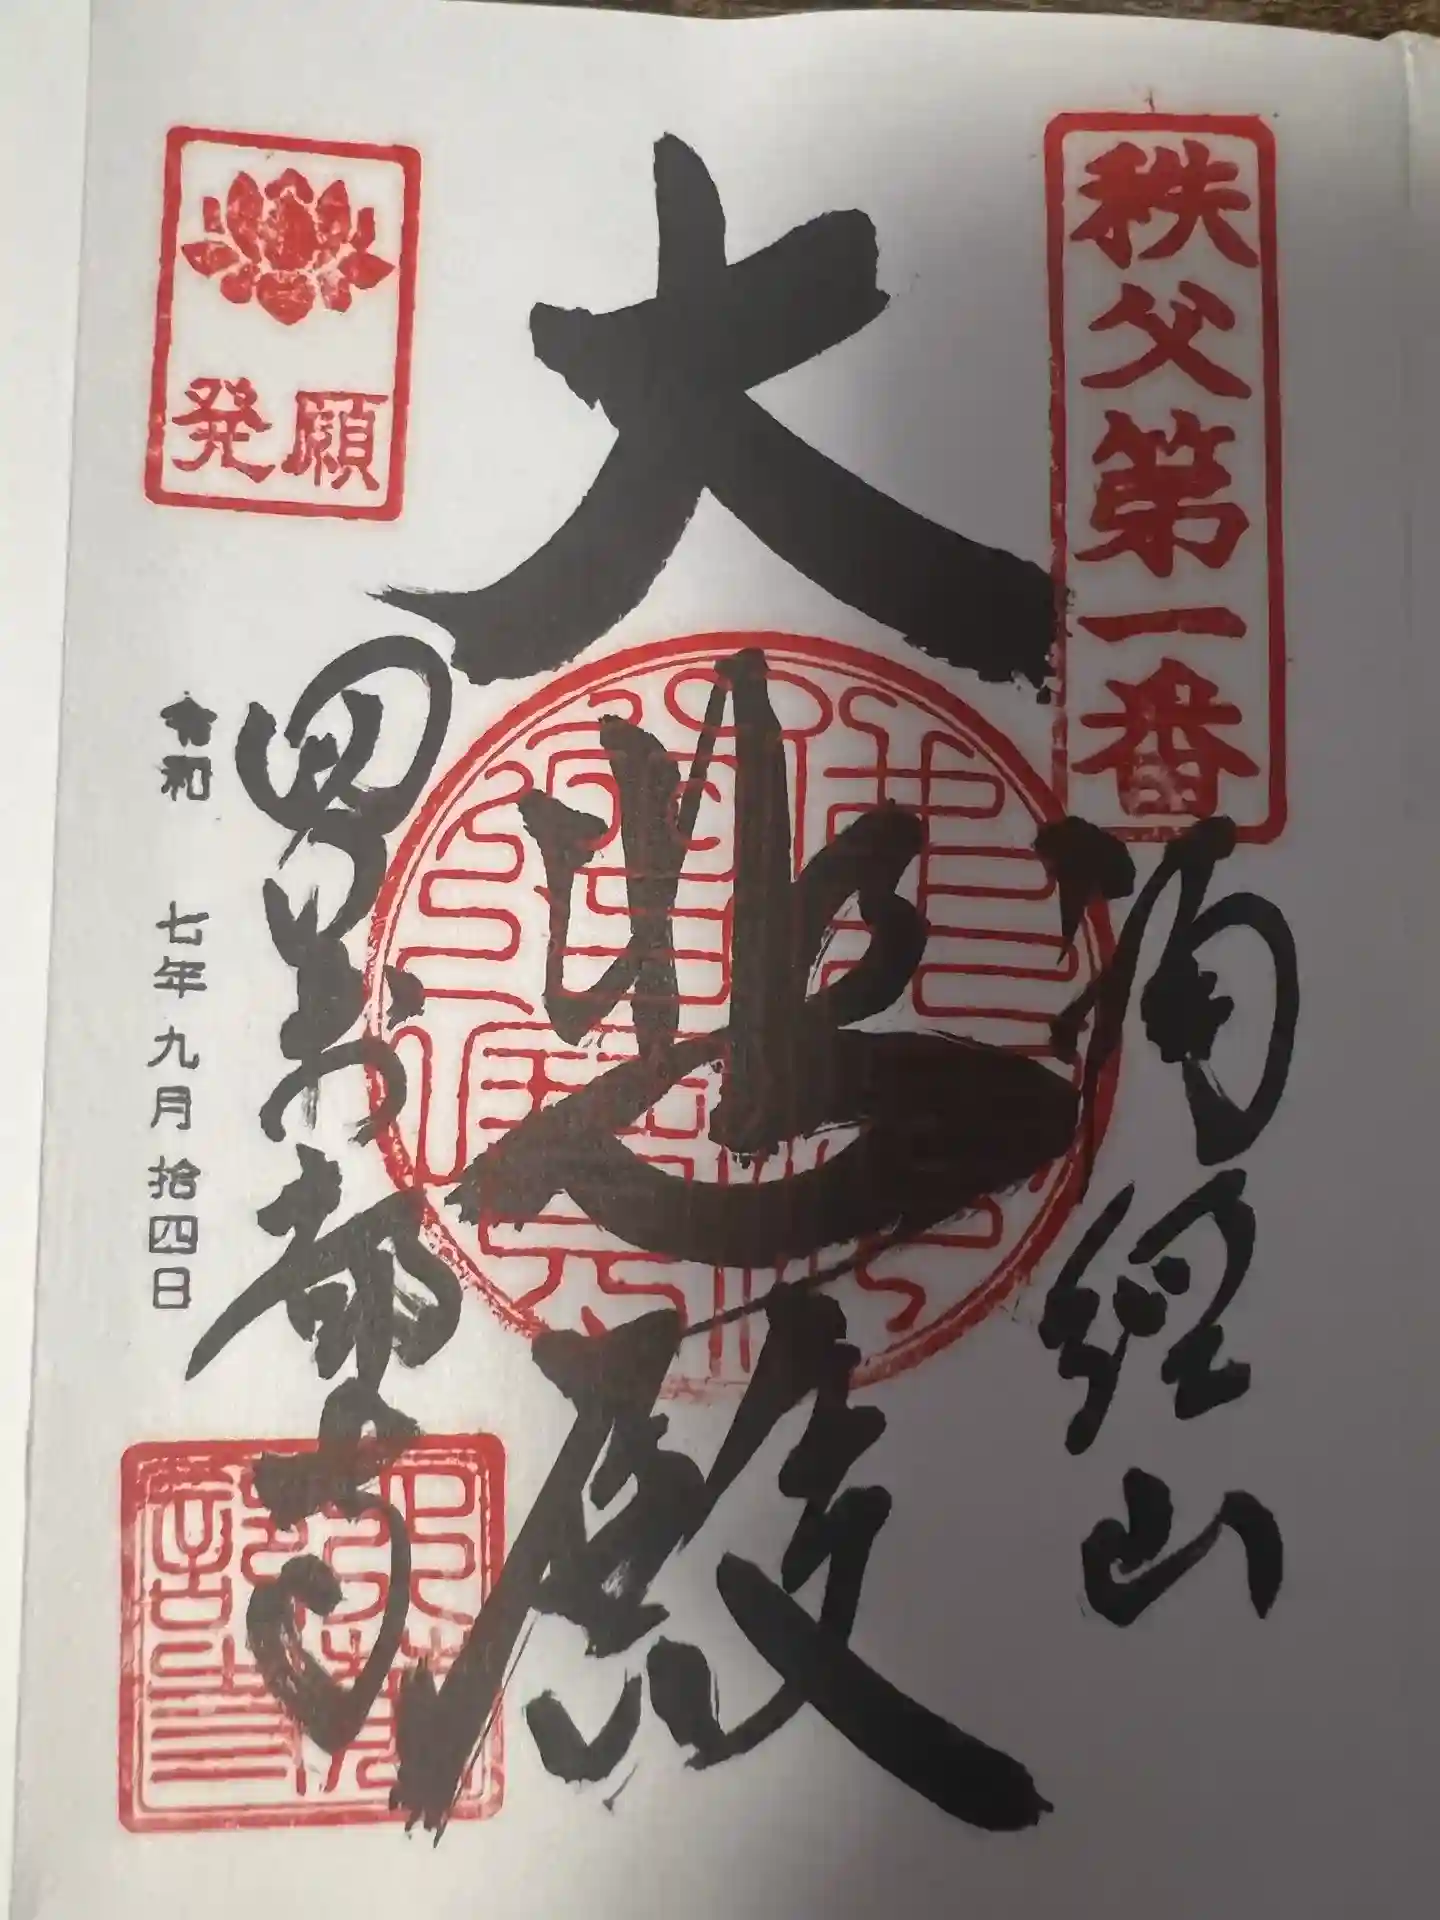 秩父第一番
誦経山
大悲殿
発願
四萬部寺
令和 七年九月拾四日